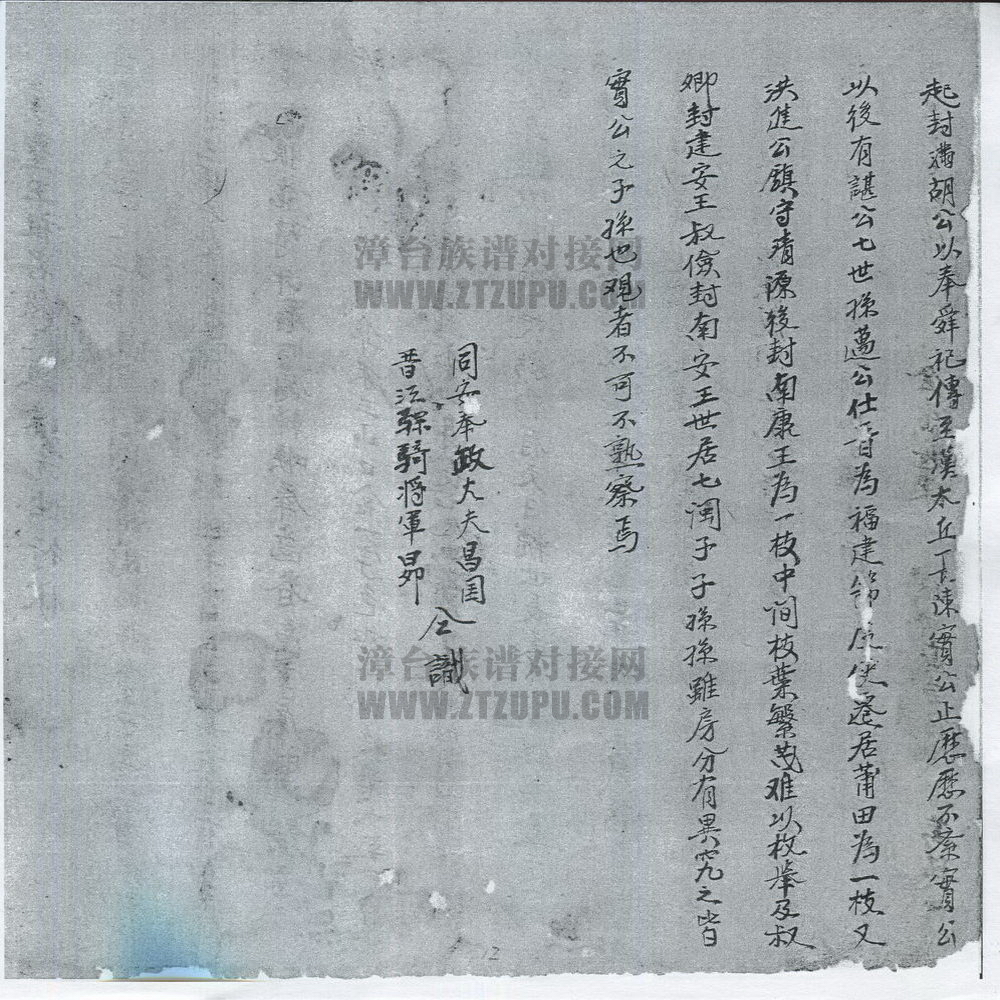 起封滿胡公以奉舜祀傳至漢太丘長陳實公止歷歷不紊實公
以後有諶公七世孫邁公仕晉為福建節度使遂居莆田為一枝又
洪進公鎮守清源後封南康王為一枝中间枝葉繁茂难以枚举及叔
卿封建安王叔儉封南安王世居七闽子子孫孫雖房分有異究之皆
實公之子孫也观者不可不熟察焉
同安奉政大夫昌国
晋江骠騎将軍昴
仝識
漳台族谱对接网
WWW.ZTZUPU.COM
漳台族谱对接网
WWW.ZTZUPU.COM
12